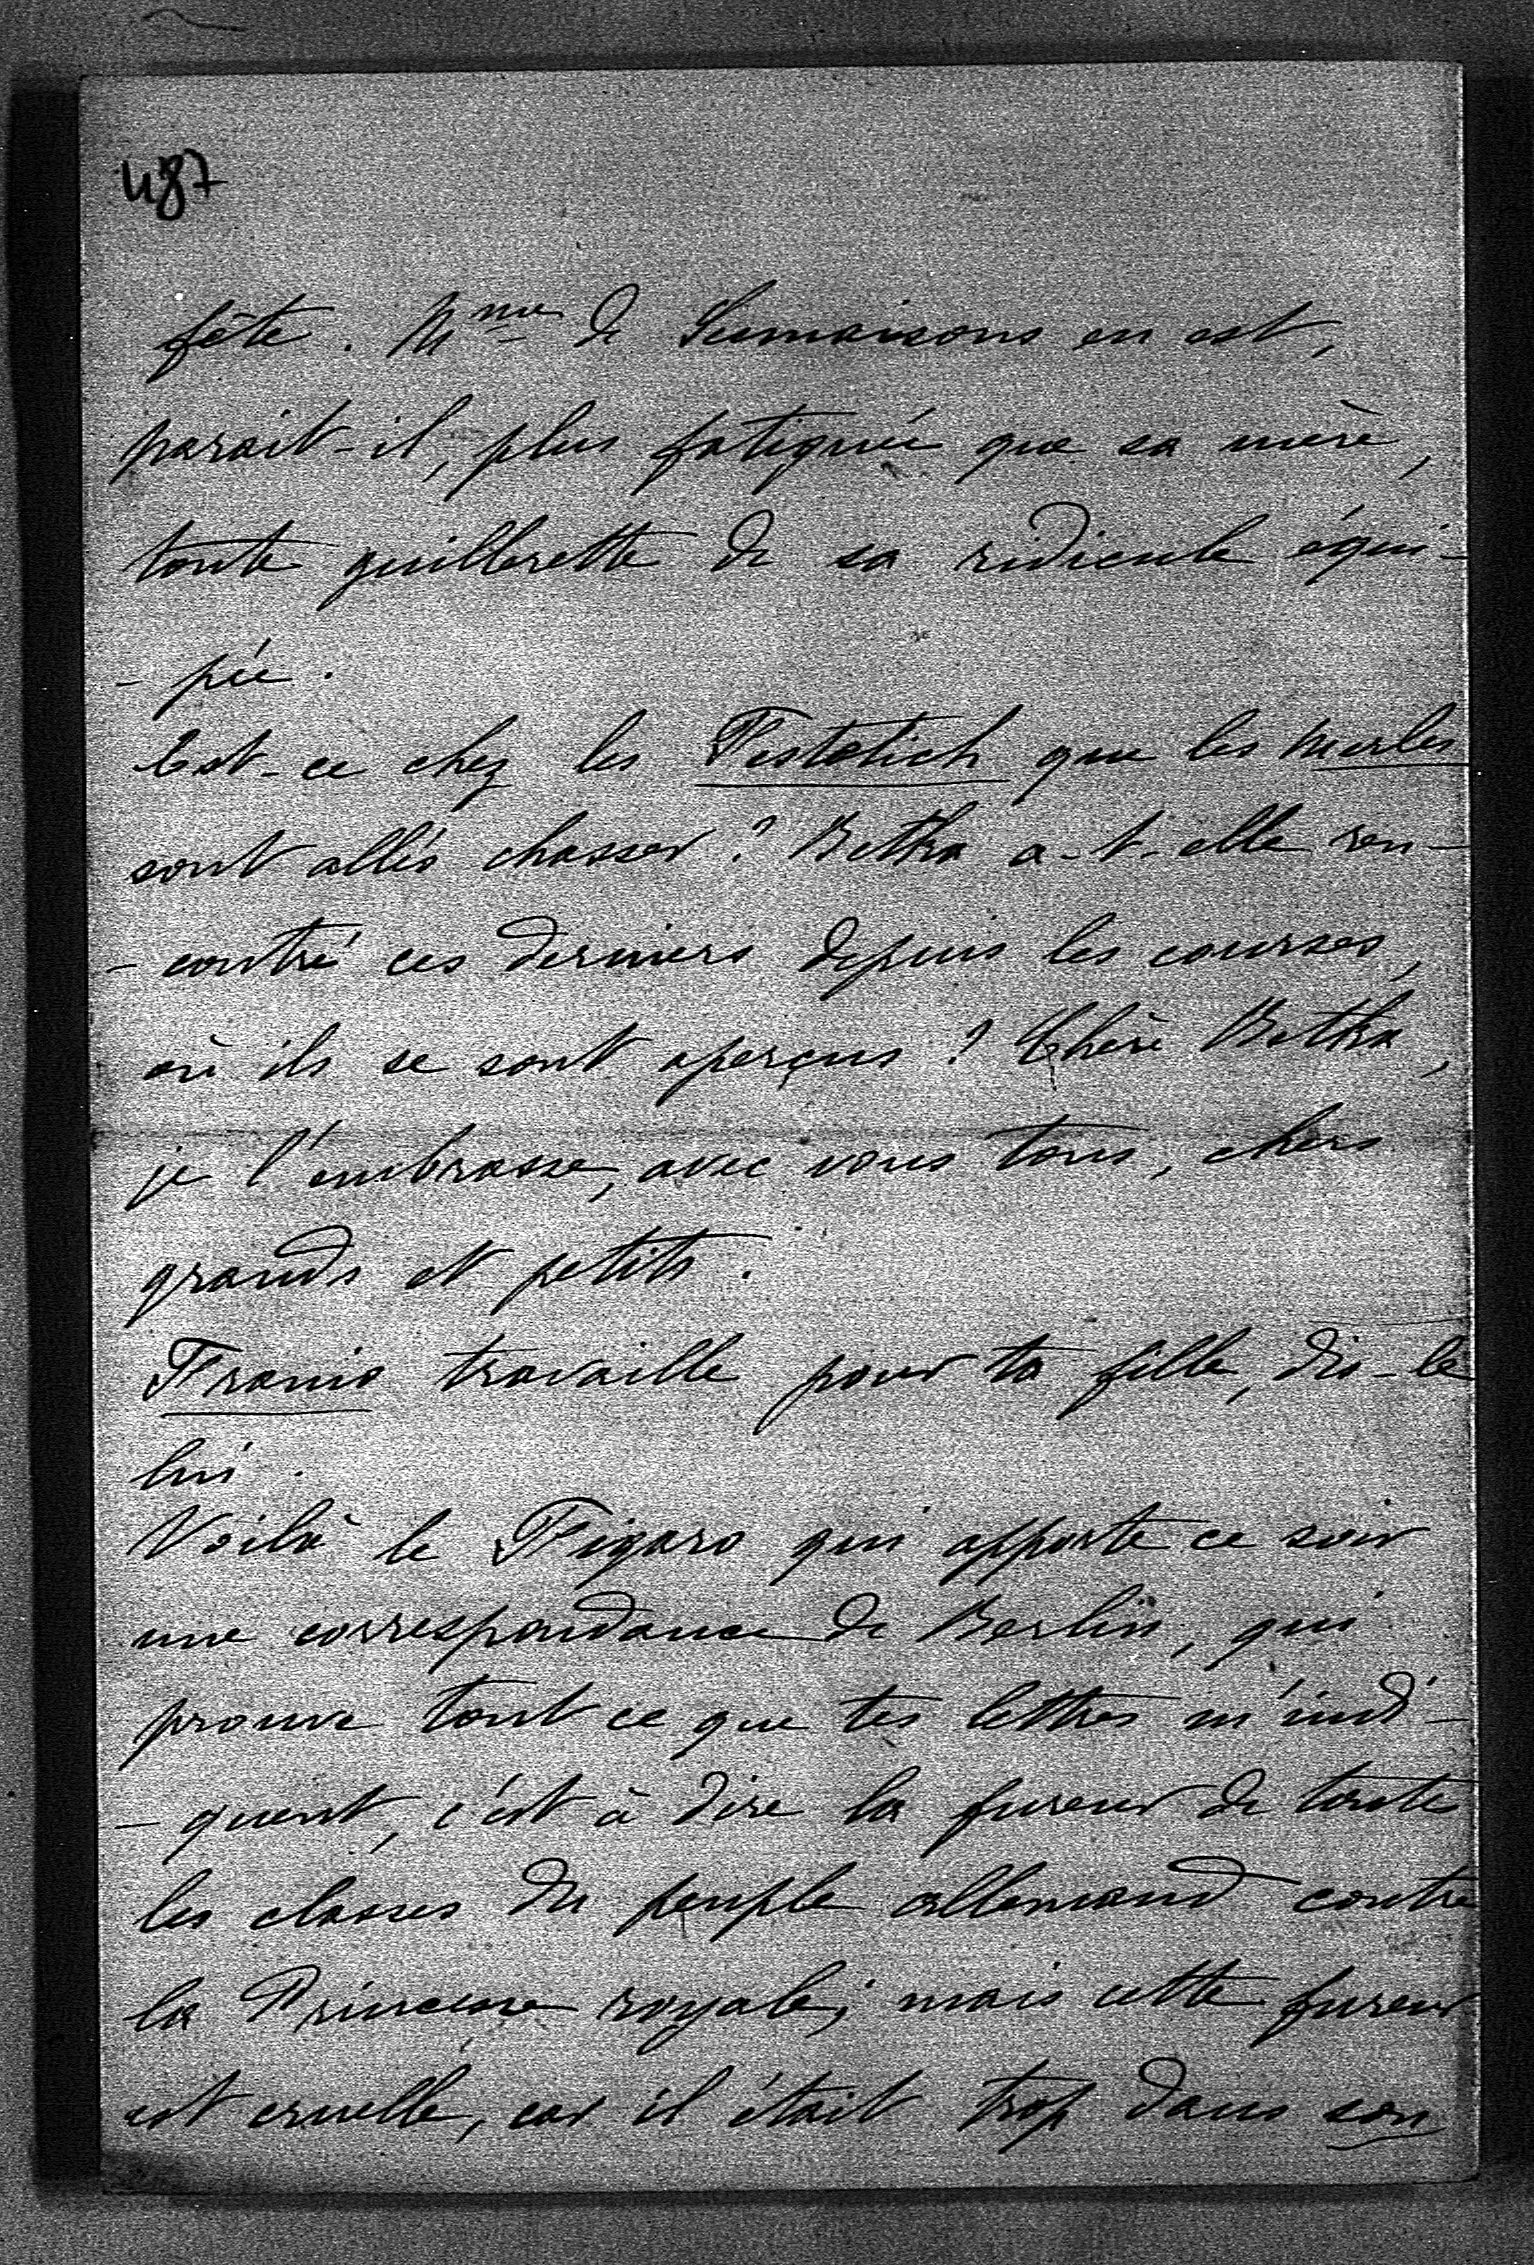 487
fête. Mme de Semaisons en est,
parait-il, plus fatiguée que sa mère,
toute guillerette de sa ridicule équi-
-pée.
Est-ce chez les Festetich que les Merles
sont allés chasser ? Betka a-t-elle ren-
-contré ces derniers depuis les courses,
où ils se sont aperçus ? Chère Betka,
je l'embrasse, avec vous tous, chers
grands et petits.
travaille pour ta fille, dis-le
lui.
Voilà le Figaro qui apporte ce soir
une correspondance de Berlin, qui
prouve tout ce que tes lettres m'indi-
-quent, c'est à dire la fureur de toutes
les classes du peuple allemand contre
la Princesse royale; mais cette fureur
est cruelle, car il était trop dans son